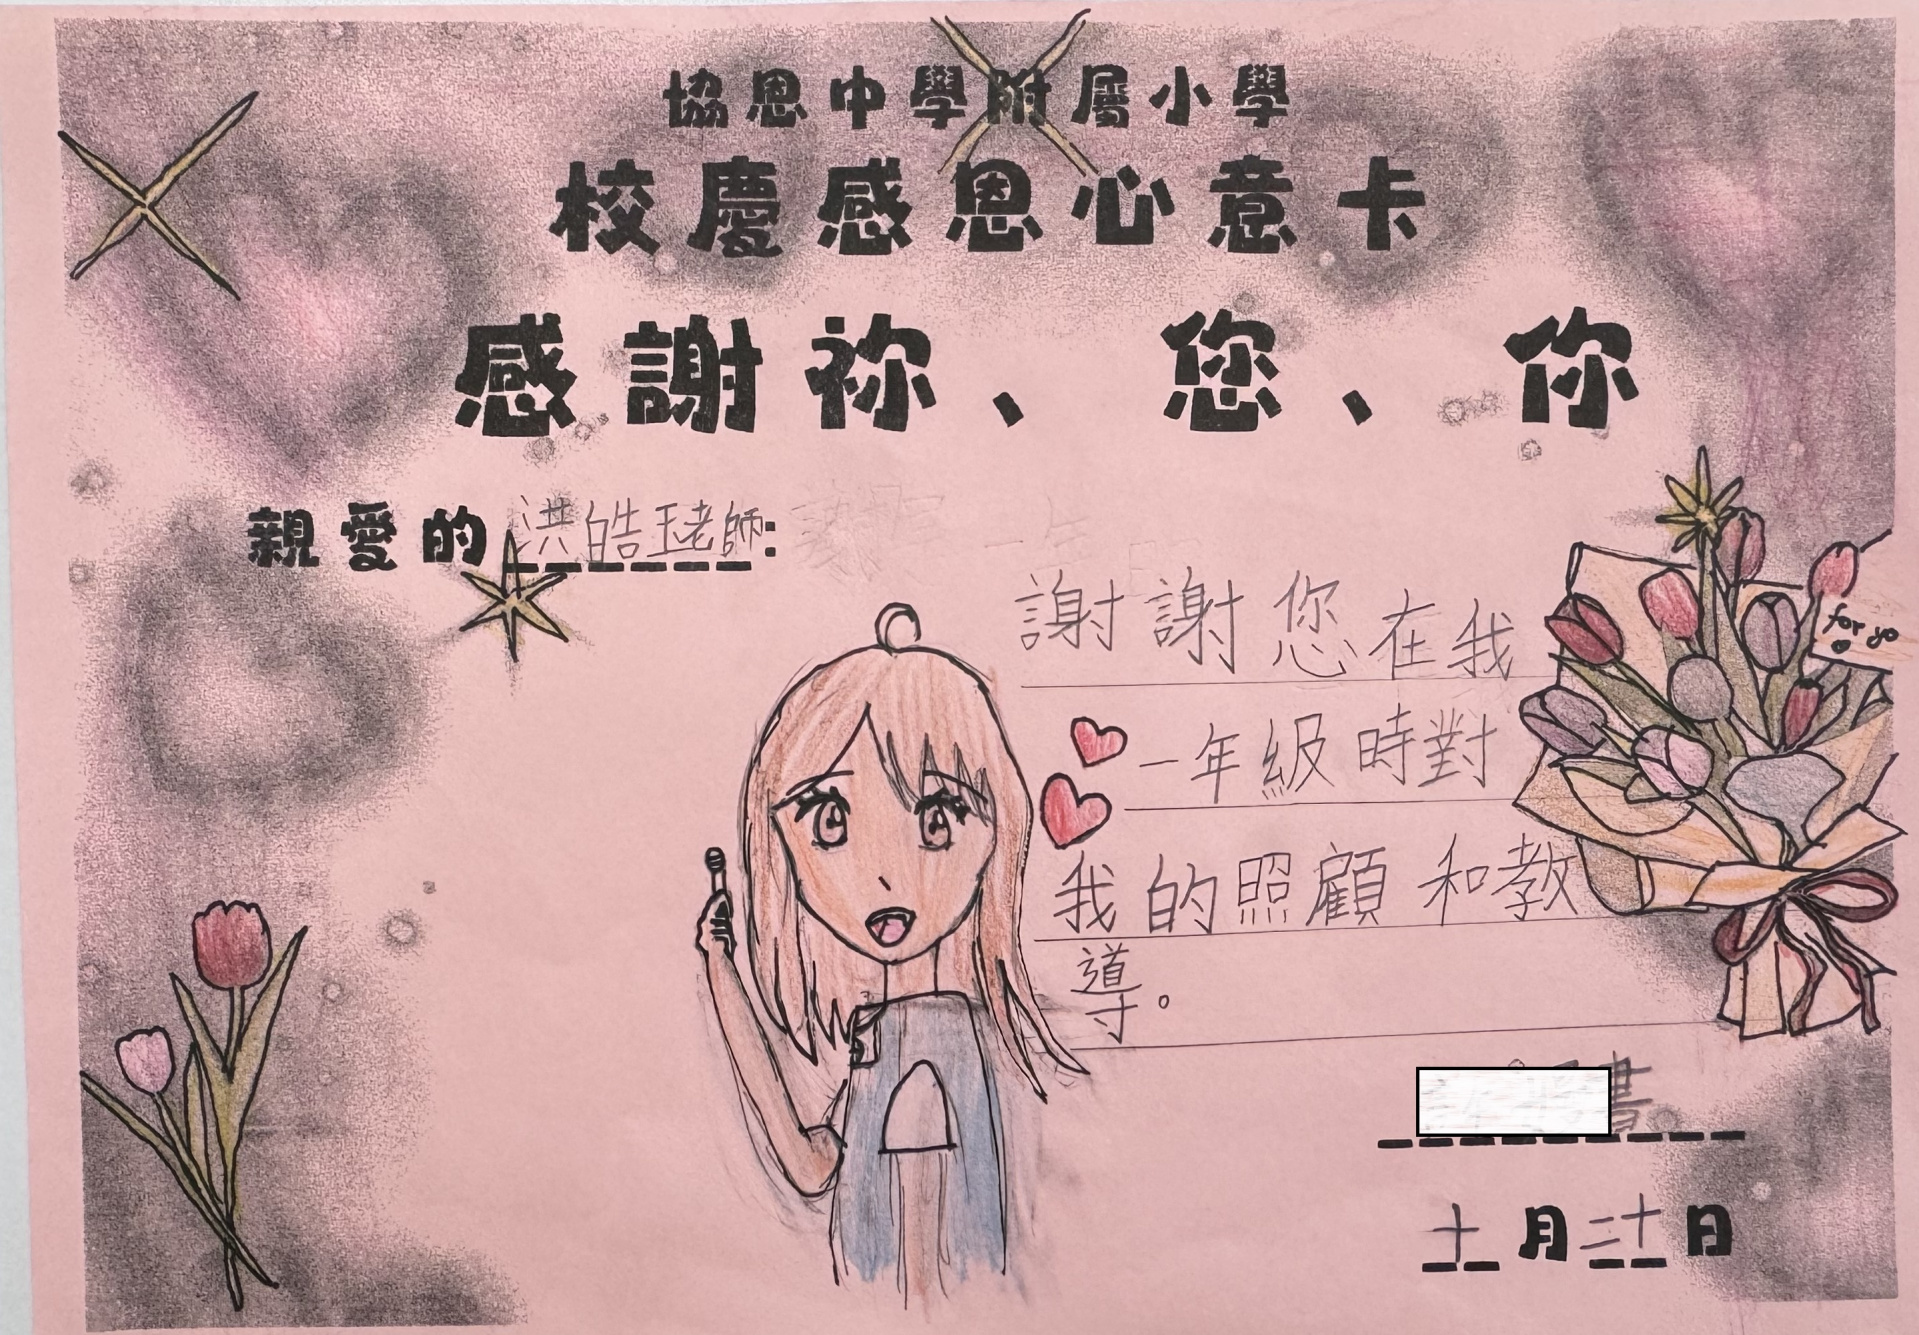 協恩中學附屬小學
校慶感恩心意卡
感謝祢、您、你
親愛的洪皓珏老師:
謝謝您在我
一年級時對
我的照顧和教
導。
for yo
書
十月二十日